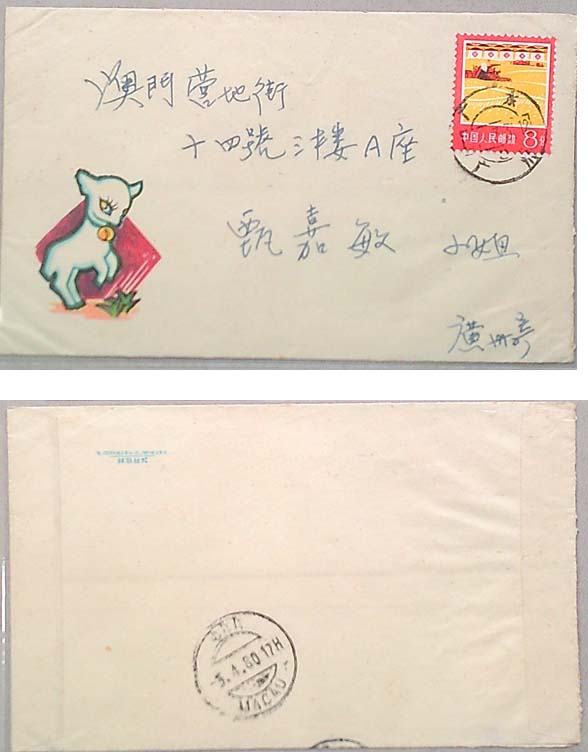 澳門營地街
十四號三楼A座
甄嘉敏 小姐
廣州寄
中国人民邮政 8分
-5.4.80 17H
MACAU